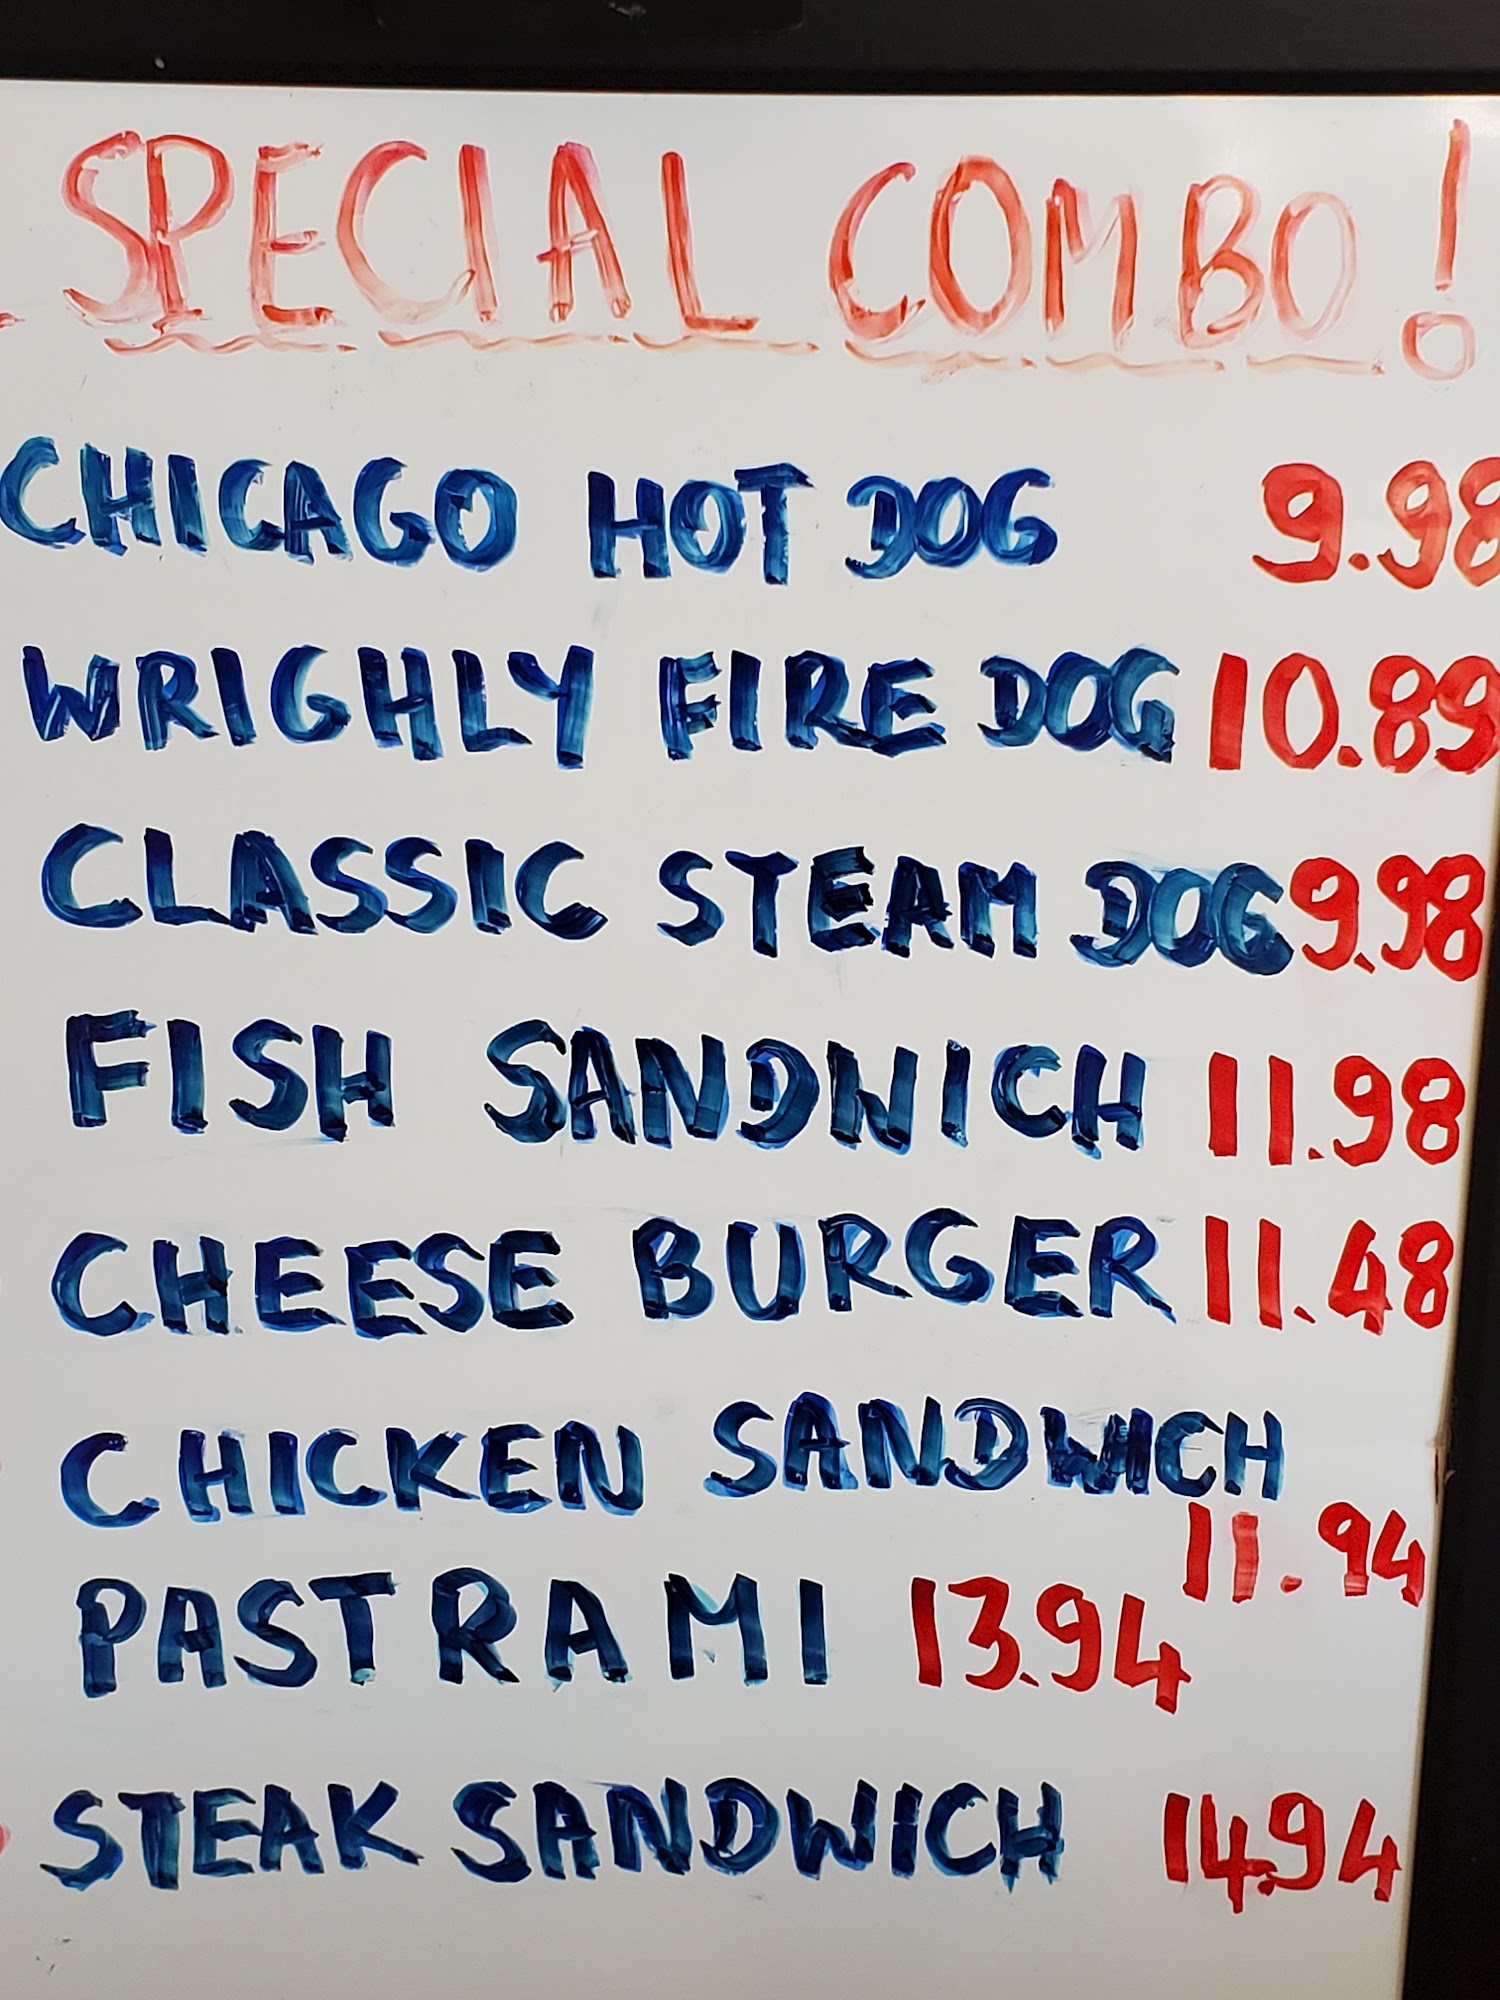 SPECIAL COMBO!
CHICAGO HOT DOG 9.98
WRIGHLY FIRE DOG 10.89
CLASSIC STEAM DOG 9.98
FISH SANDWICH 11.98
CHEESE BURGER 11.48
CHICKEN SANDWICH
11.94
PASTRAMI 13.94
STEAK SANDWICH 14.94